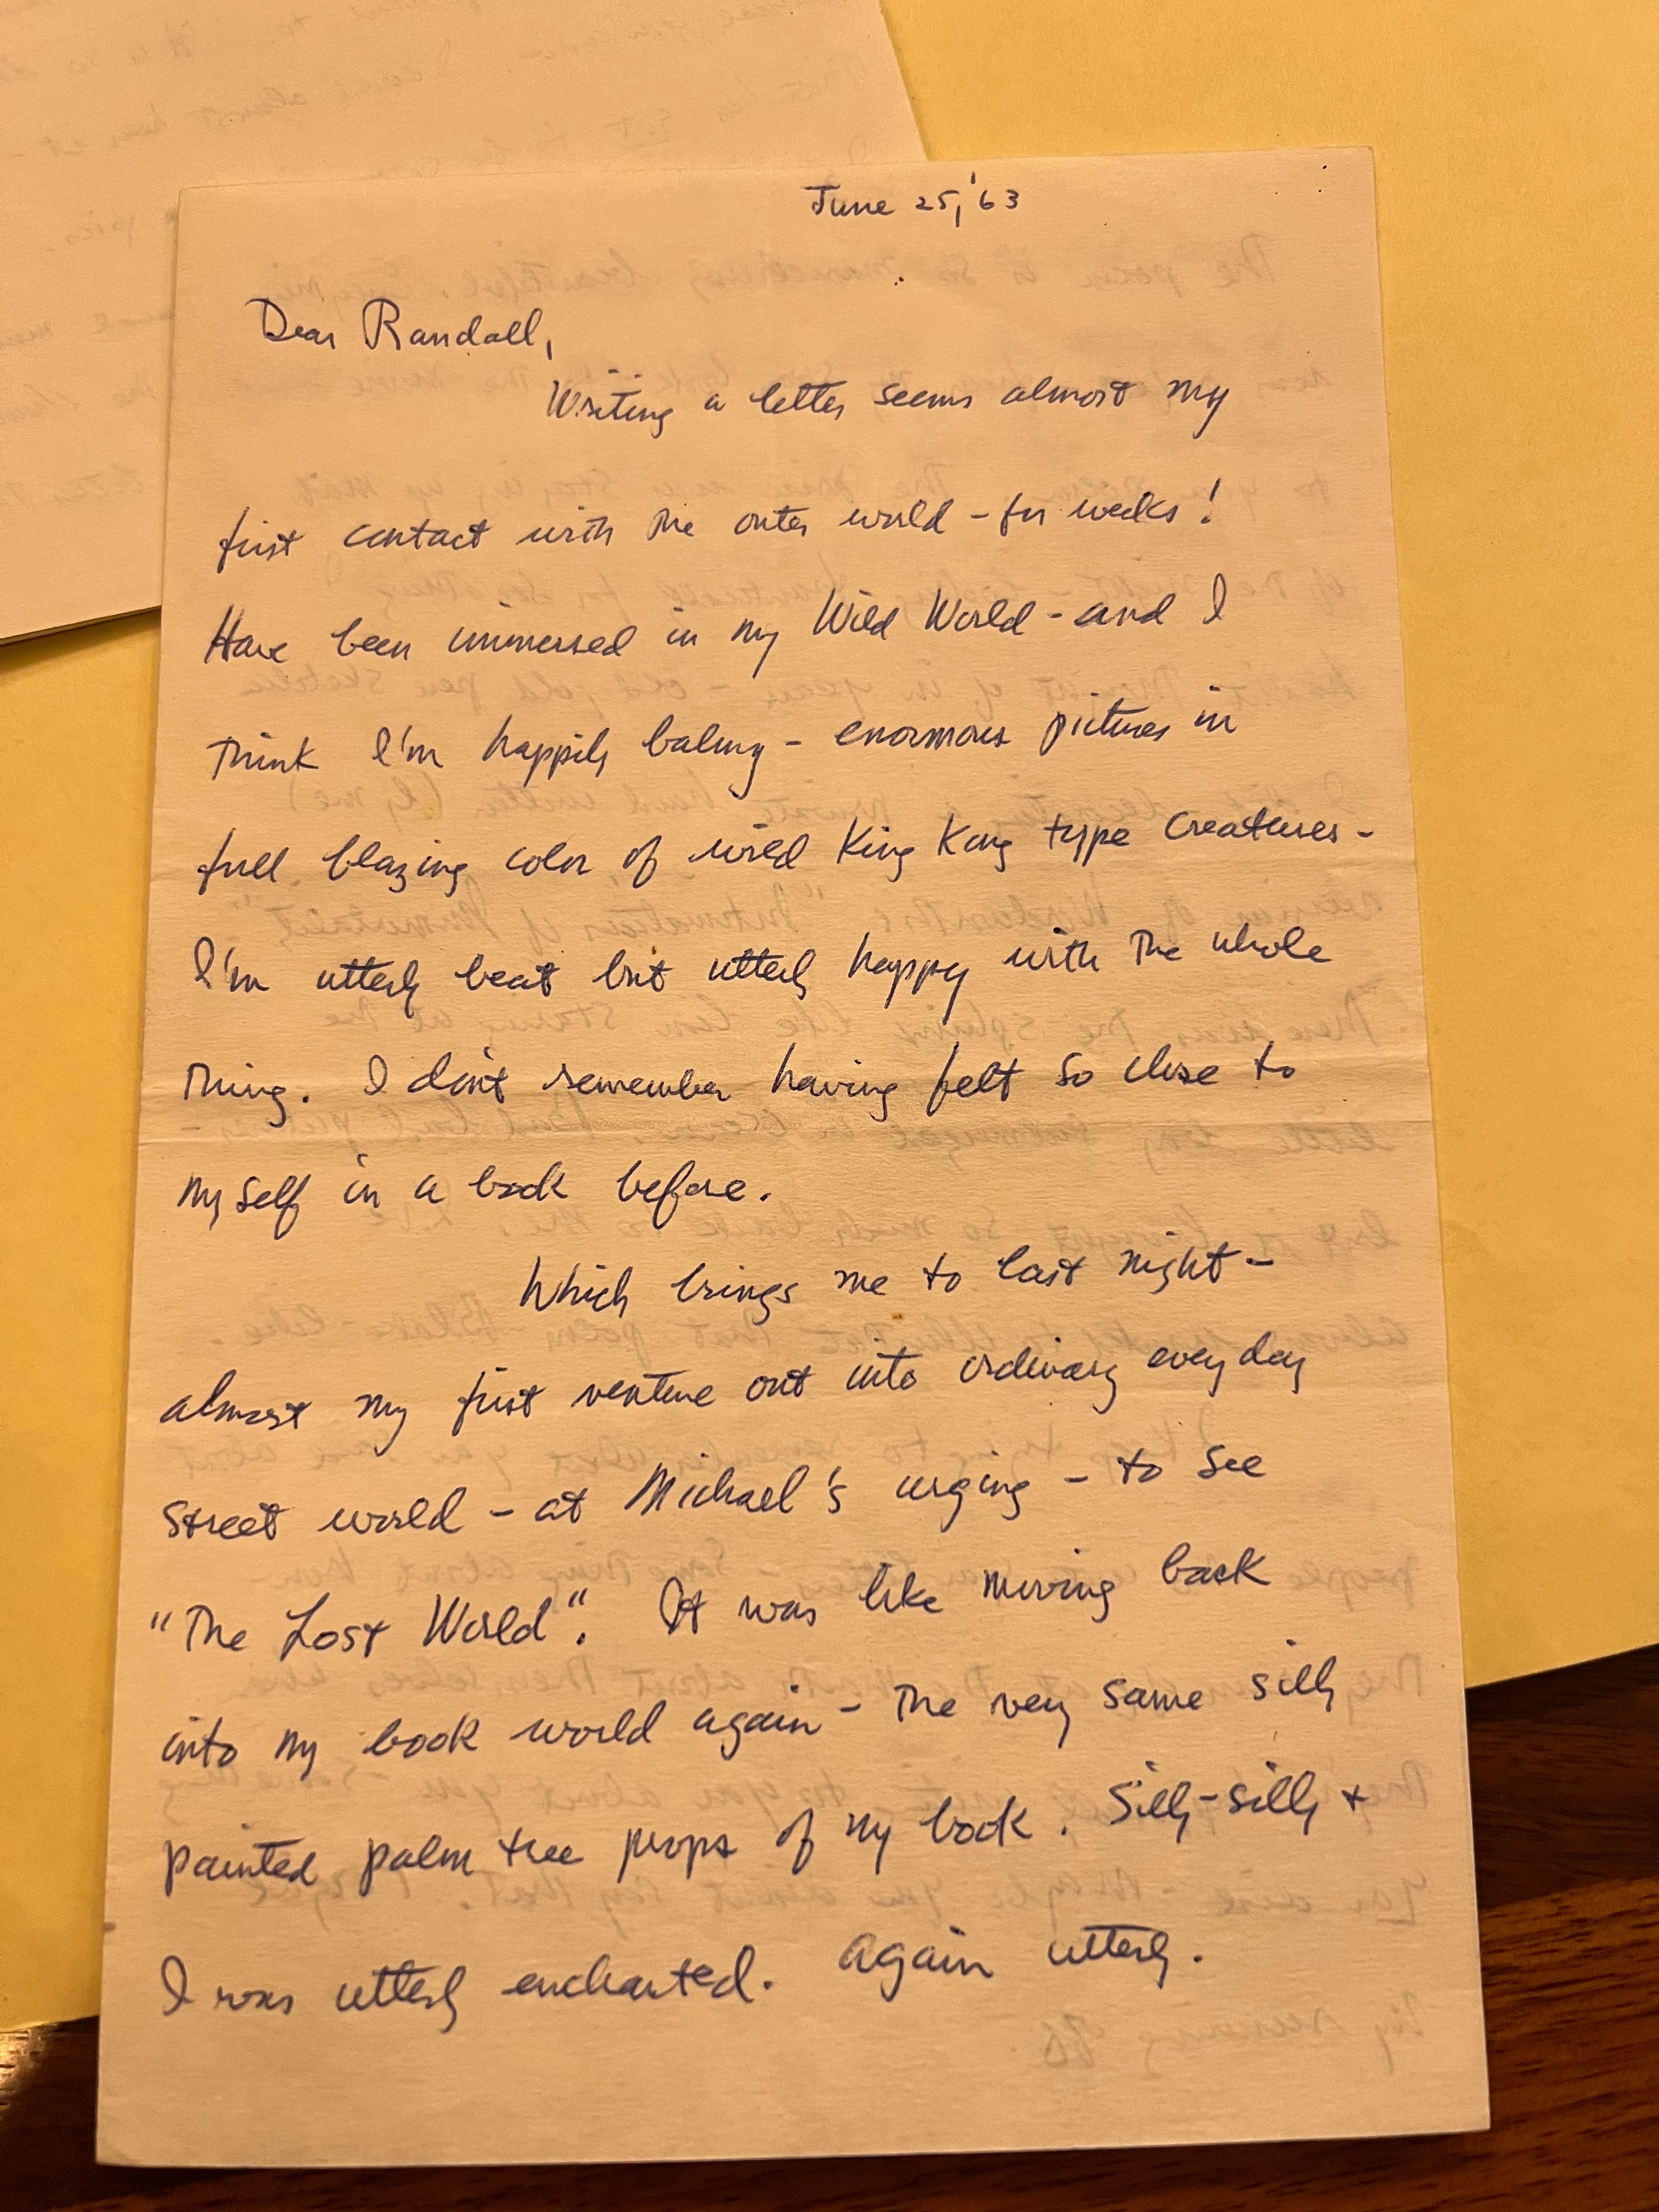 June 25, '63
Dear Randall,
Writing a letter seems almost my
first contact with the outer world - for weeks!
Have been immersed in my Wild World - and I
think I'm happily balmy - enormous pictures in
full blazing color of wild King Kong type creatures -
I'm utterly beat but utterly happy with the whole
thing. I don't remember having felt so close to
myself in a book before.
Which brings me to last night -
almost my first venture out into ordinary every day
street world - at Michael's urging - to see
"The Lost World". It was like moving back
into my book world again - the very same silly
painted palm tree props of my book. Silly-silly +
I was utterly enchanted. Again utterly.